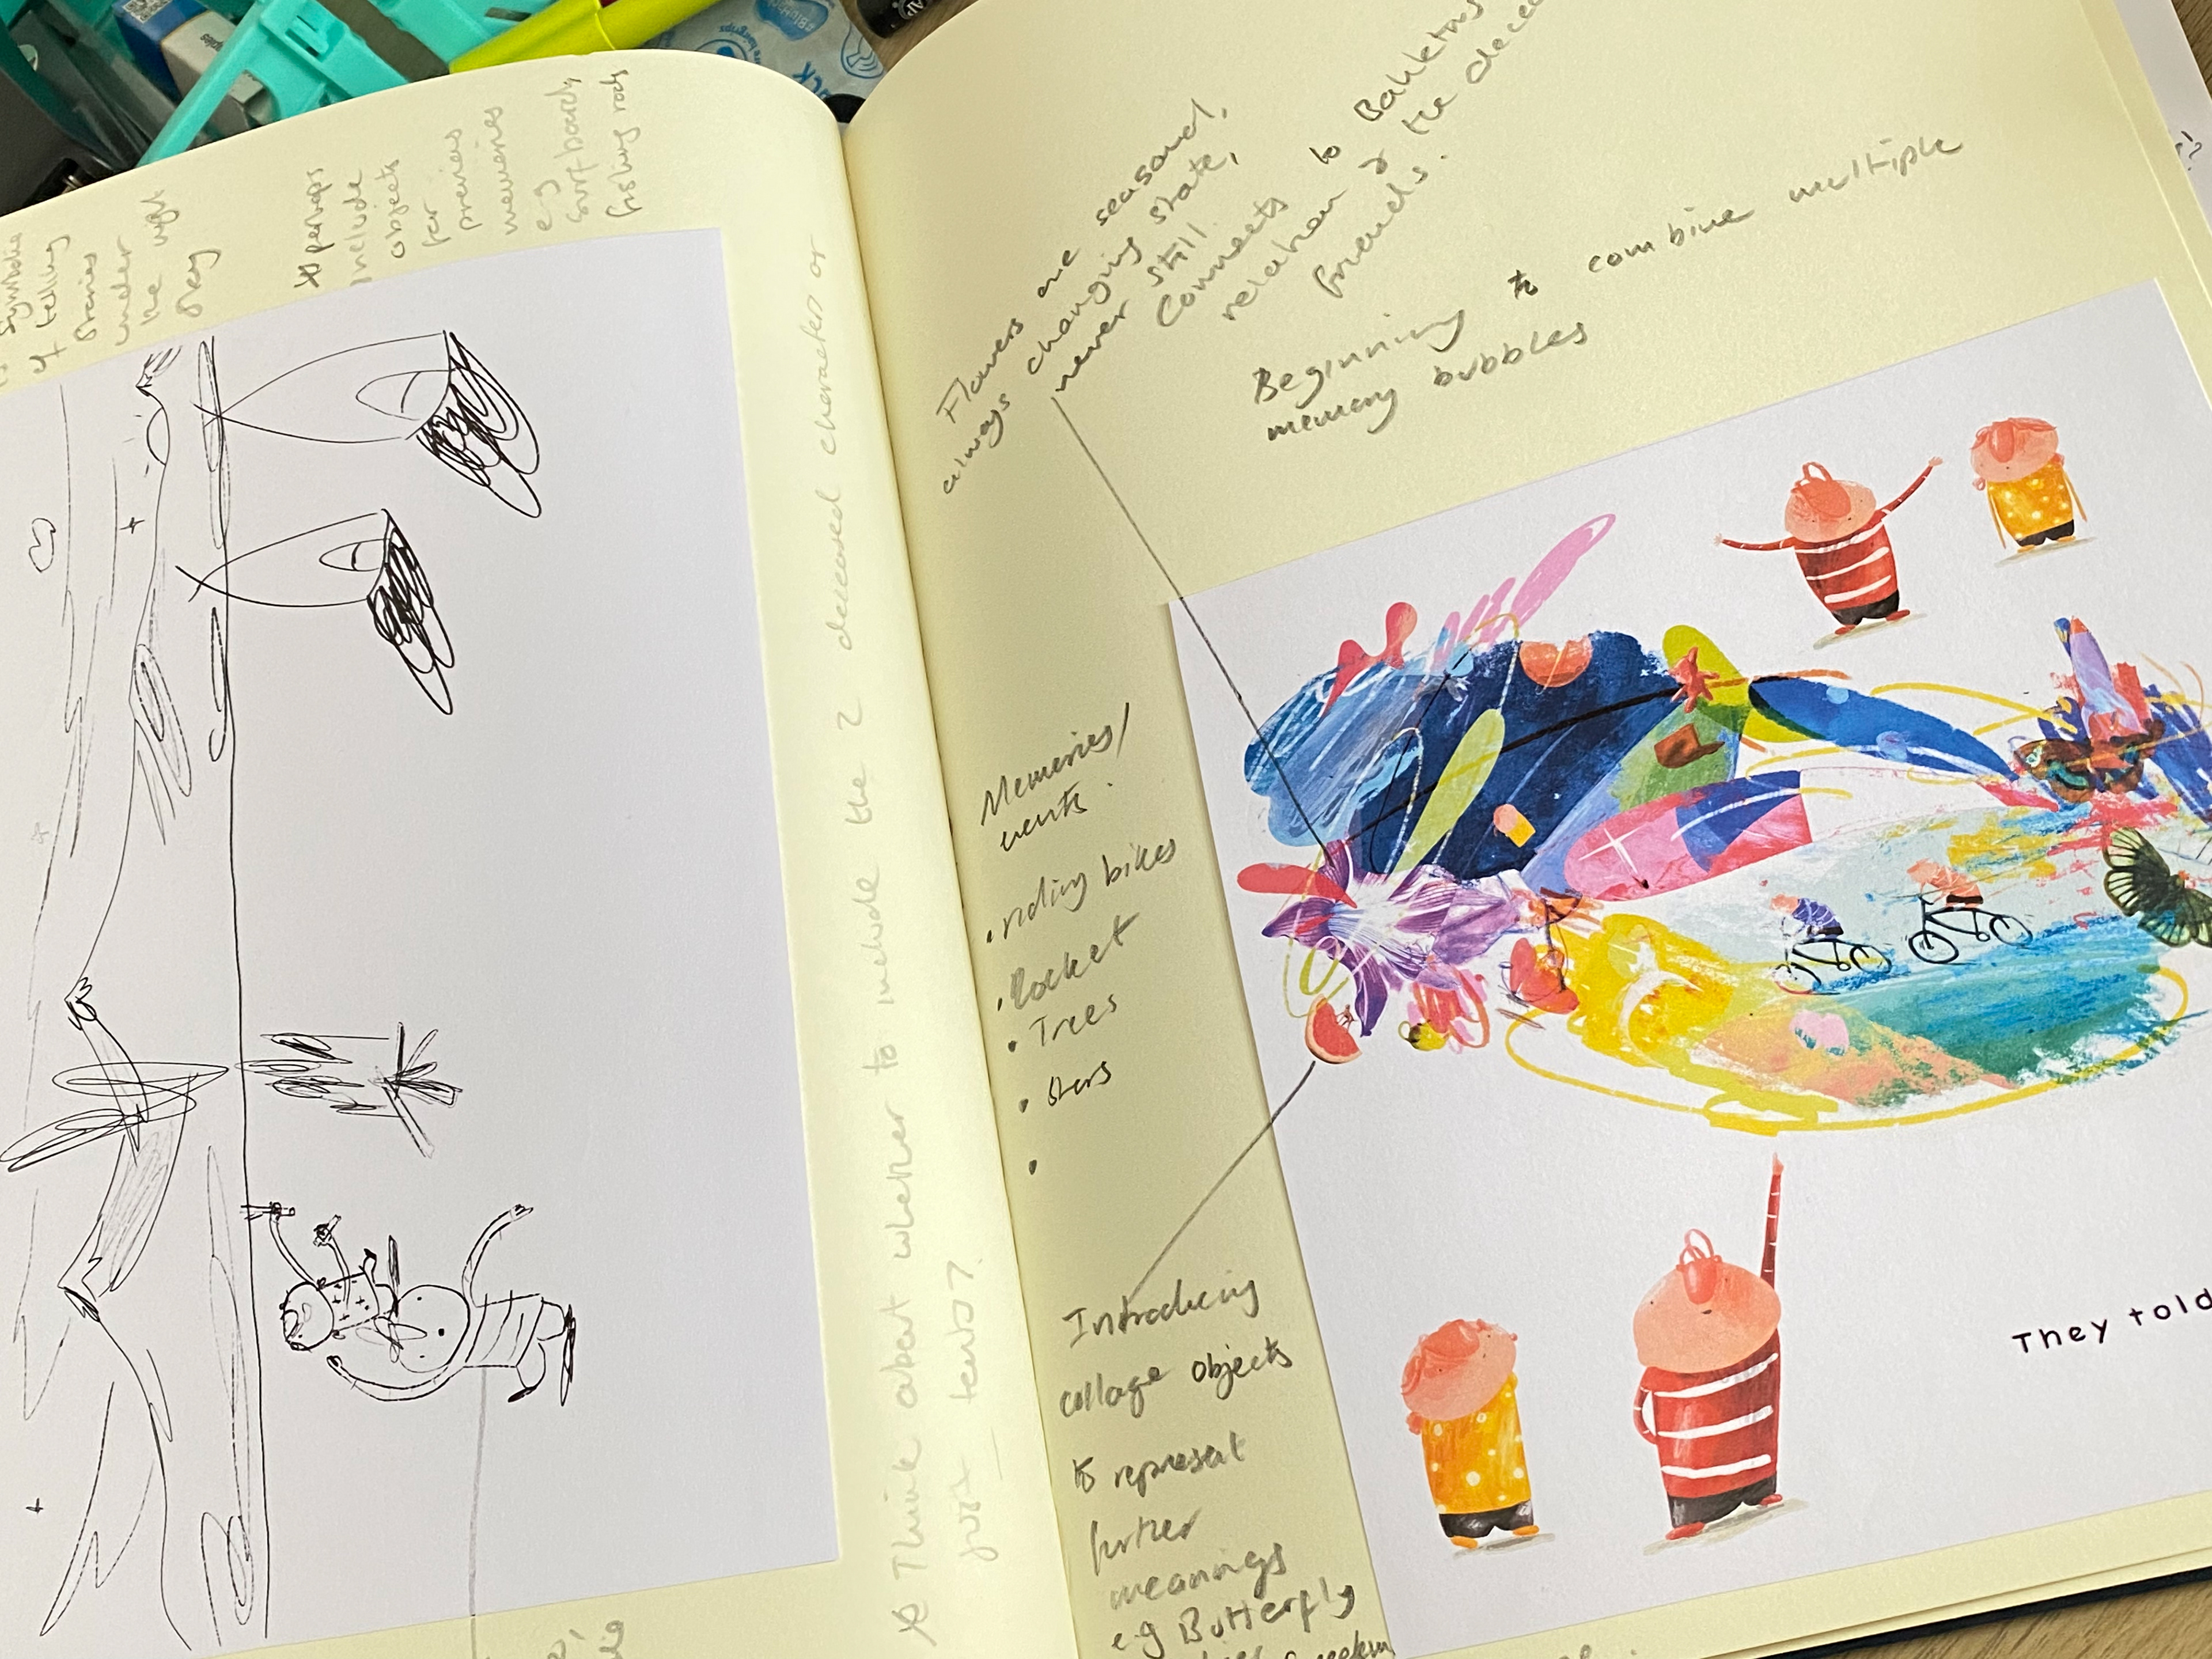 symbolic
of telling
stories
under
the night
sky
* perhaps
include
objects
for
previous
memories
e.g
surfboards,
fishing rods
* Think about wether to include the 2 deceased characters or
just tents?
Flowers are seasonal,
always changing state,
never still.
Connects to
relation & the
friends.
Beginning to combine multiple
memory bubbles
Memories/
events:
• riding bikes
• Rocket
• Trees
• Stars
•
Introducing
collage objects
to represent
further
meanings
e.g Butterfly
They told